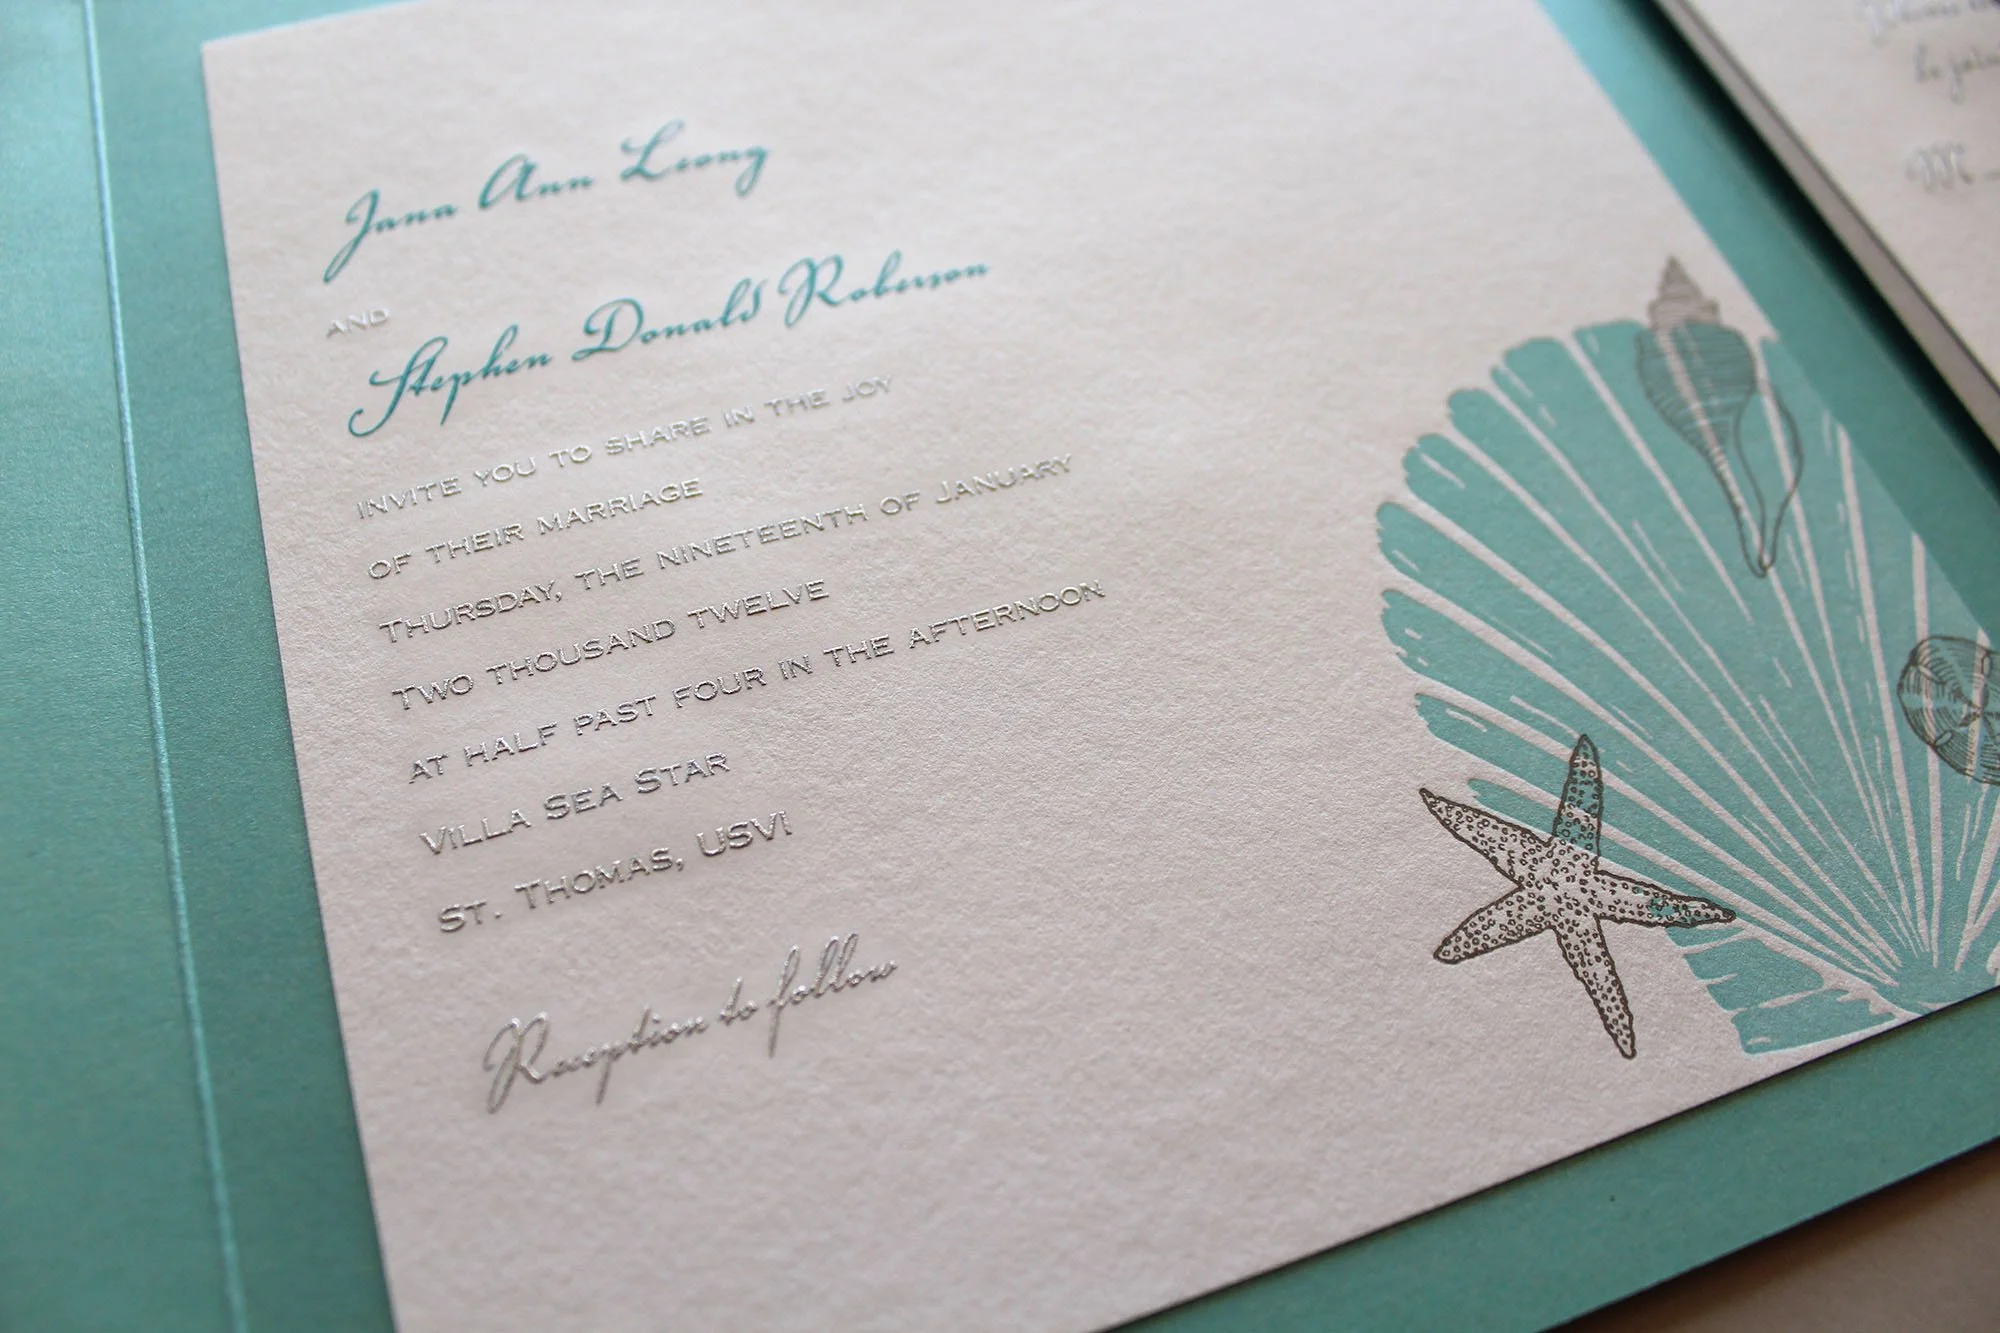 Jana Ann Leong
AND
Stephen Donald Roberson
INVITE YOU TO SHARE IN THE JOY
OF THEIR MARRIAGE
THURSDAY, THE NINETEENTH OF JANUARY
TWO THOUSAND TWELVE
AT HALF PAST FOUR IN THE AFTERNOON
VILLA SEA STAR
ST. THOMAS, USVI
Reception to follow
be
M